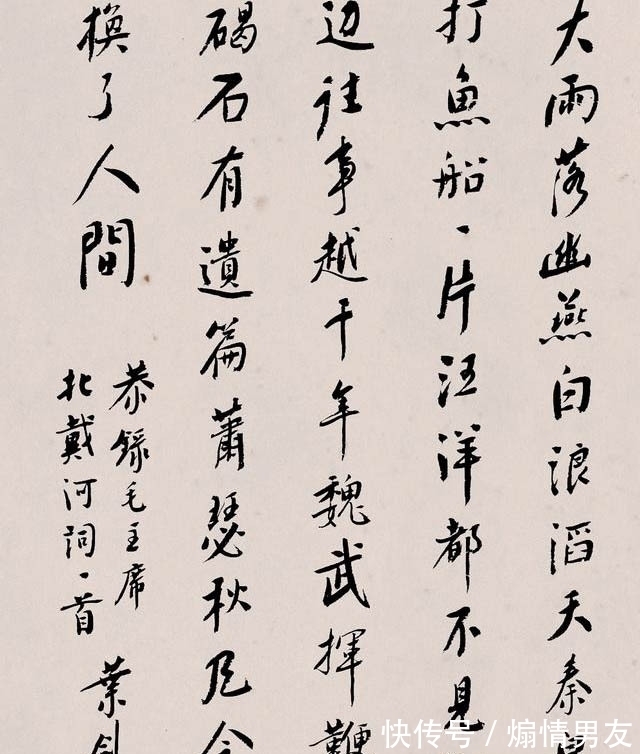 大雨落幽燕白浪滔天秦
打魚船、片汪洋都不見
边往事越千年魏武揮鞭
碣石有遺篇蕭瑟秋风今
換了人間
恭録毛主席
北戴河詞、首
葉劍
快传号/煽情男友